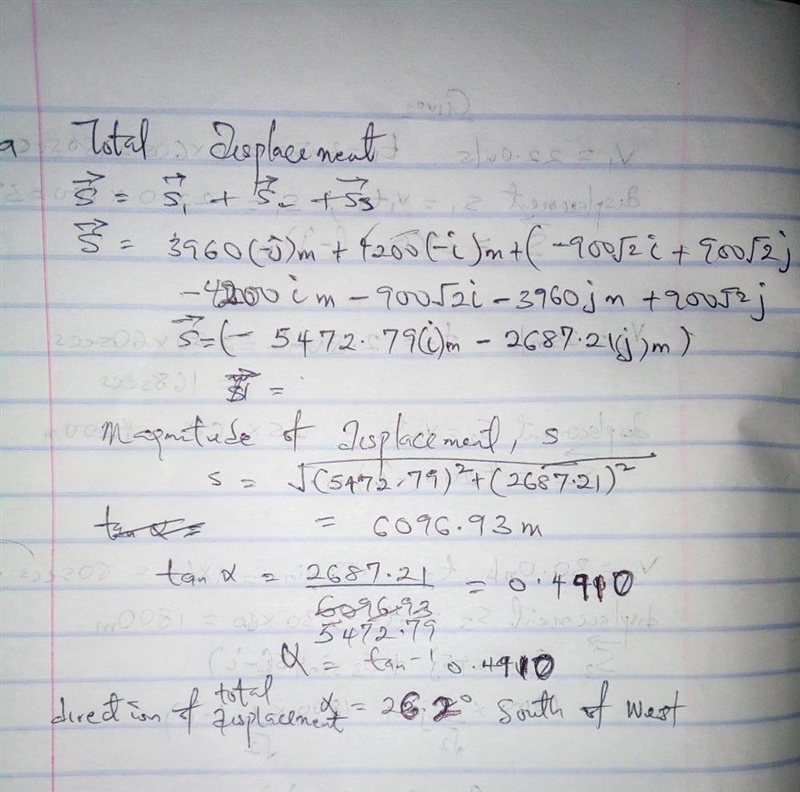 a Total Displacement
S⃗ = S⃗₁ + S⃗₂ + S⃗₃
S⃗ = 3960(-j)m + 4200(-i)m + (-900√2i + 900√2j
-4200im - 900√2i - 3960jm + 900√2j
S⃗ = (- 5472.79(i)m - 2687.21(j)m)
S⃗ =
Magnitude of Displacement, s
s = √(5472.79)² + (2687.21)²
tan α =
= 6096.93m
tan α = 2687.21 = 0.4910
6096.93
5472.79
α = tan⁻¹ 0.4910
direction of total displacement α = 26.2° South of West